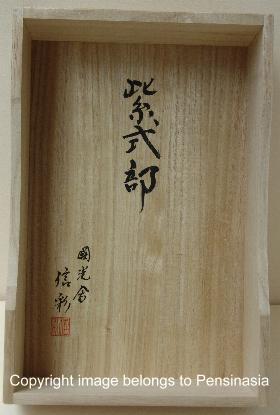 紫式部
國光會
信彩
Copyright image belongs to Pensinasia